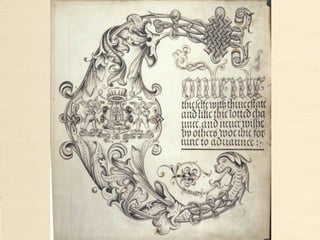 ontente
thie selfe with thine estate
and like thie lotted cha
unce, and never wishe
by others woe thie for
tune to advaunce :~